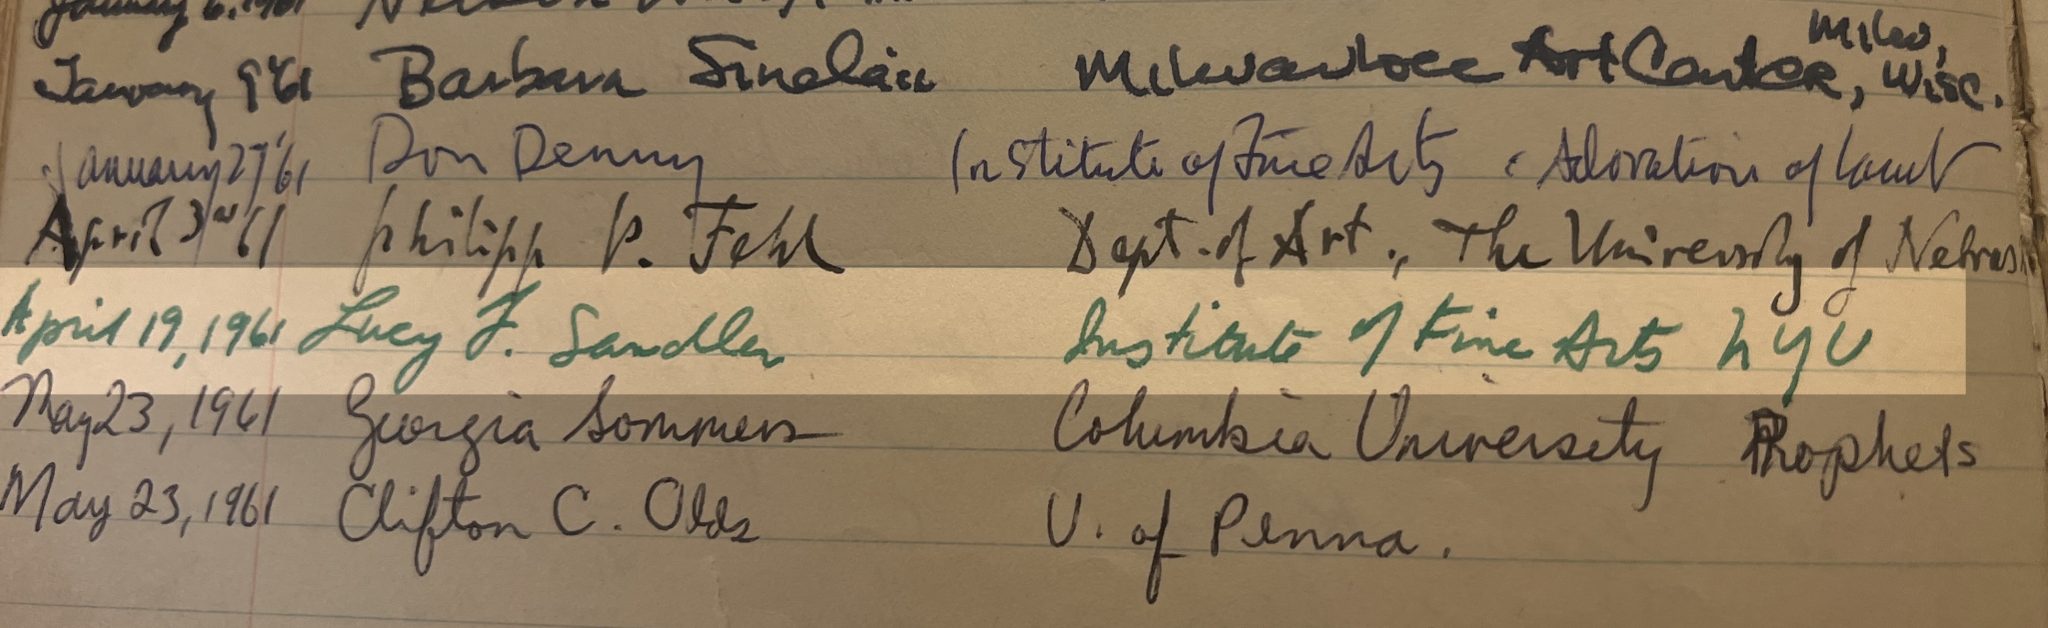 January 6, 1961 Nelson
January 9 '61 Barbara Sinclair Milwaukee Art Center, Milw, Wisc.
January 27 '61 Don Denny Institute of Fine Arts Adoration of Lamb
April 3rd 61 Philipp P. Fehl Dept. of Art, The University of Nebras
April 19, 1961 Lucy F. Sandler Institute of Fine Arts NYU
May 23, 1961 Georgia Sommers Columbia University Prophets
May 23, 1961 Clifton C. Olds U. of Penna.